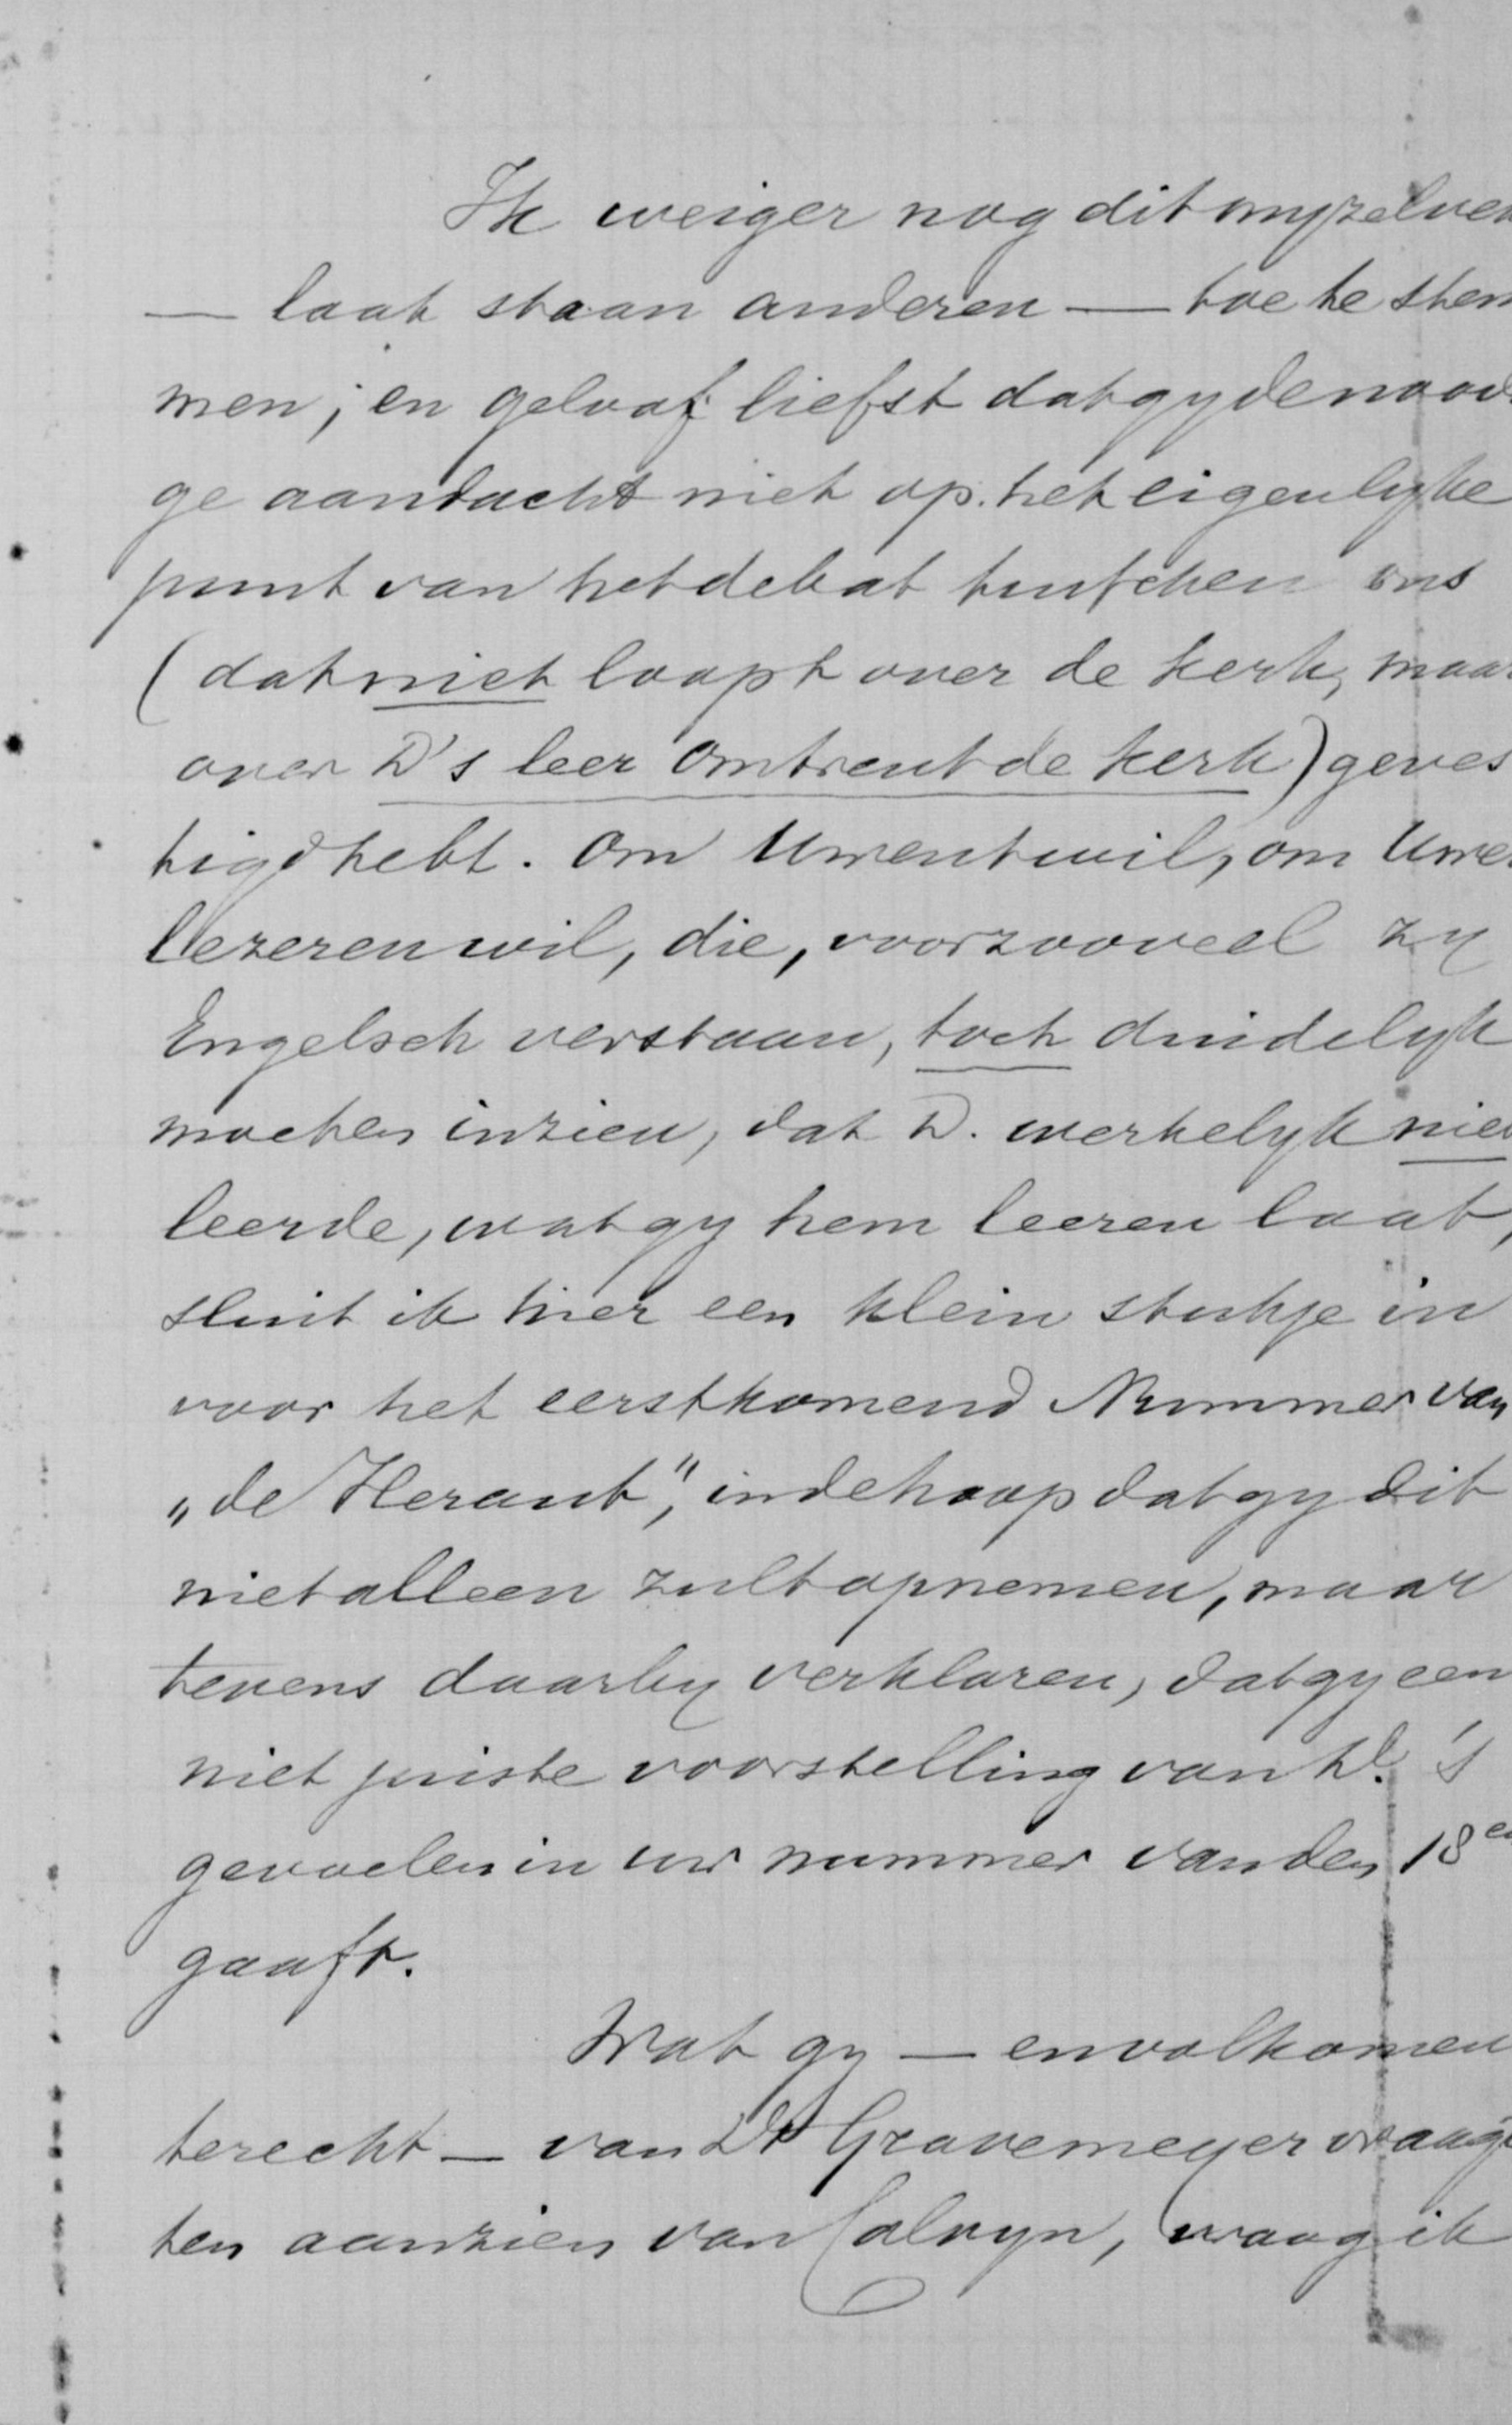 Ik weiger nog dit mijzelven
— laat staan anderen — toe te stem
men; en geloof liefst dat gy de nood
ge aandacht niet op het eigenlyke
punt van het debat tusschen ons
(dat niet loopt over de kerk, maar
over D's leer omtrent de kerk) geves
tigd hebt. Om Uwentwil, om Uwer
lezeren wil, die, voorzooveel zy
Engelsch verstaan, toch duidelyk
moeten inzien, dat D. werkelyk niet
leerde, wat gy hem leeren laat,
sluit ik hier een klein stukje in
voor het eerstkomend Nummer van
„de Heraut", in de hoop dat gy dit
niet alleen zult opnemen, maar
tevens daarby verklaren, dat gy een
niet juiste voorstelling van D.'s
gevoelen in uw nummer van den 18en
gaaft.
Wat gy — en volkomen
terecht — van Ds Gravemeyer vraagt
ten aanzien van Calvyn, vraag ik